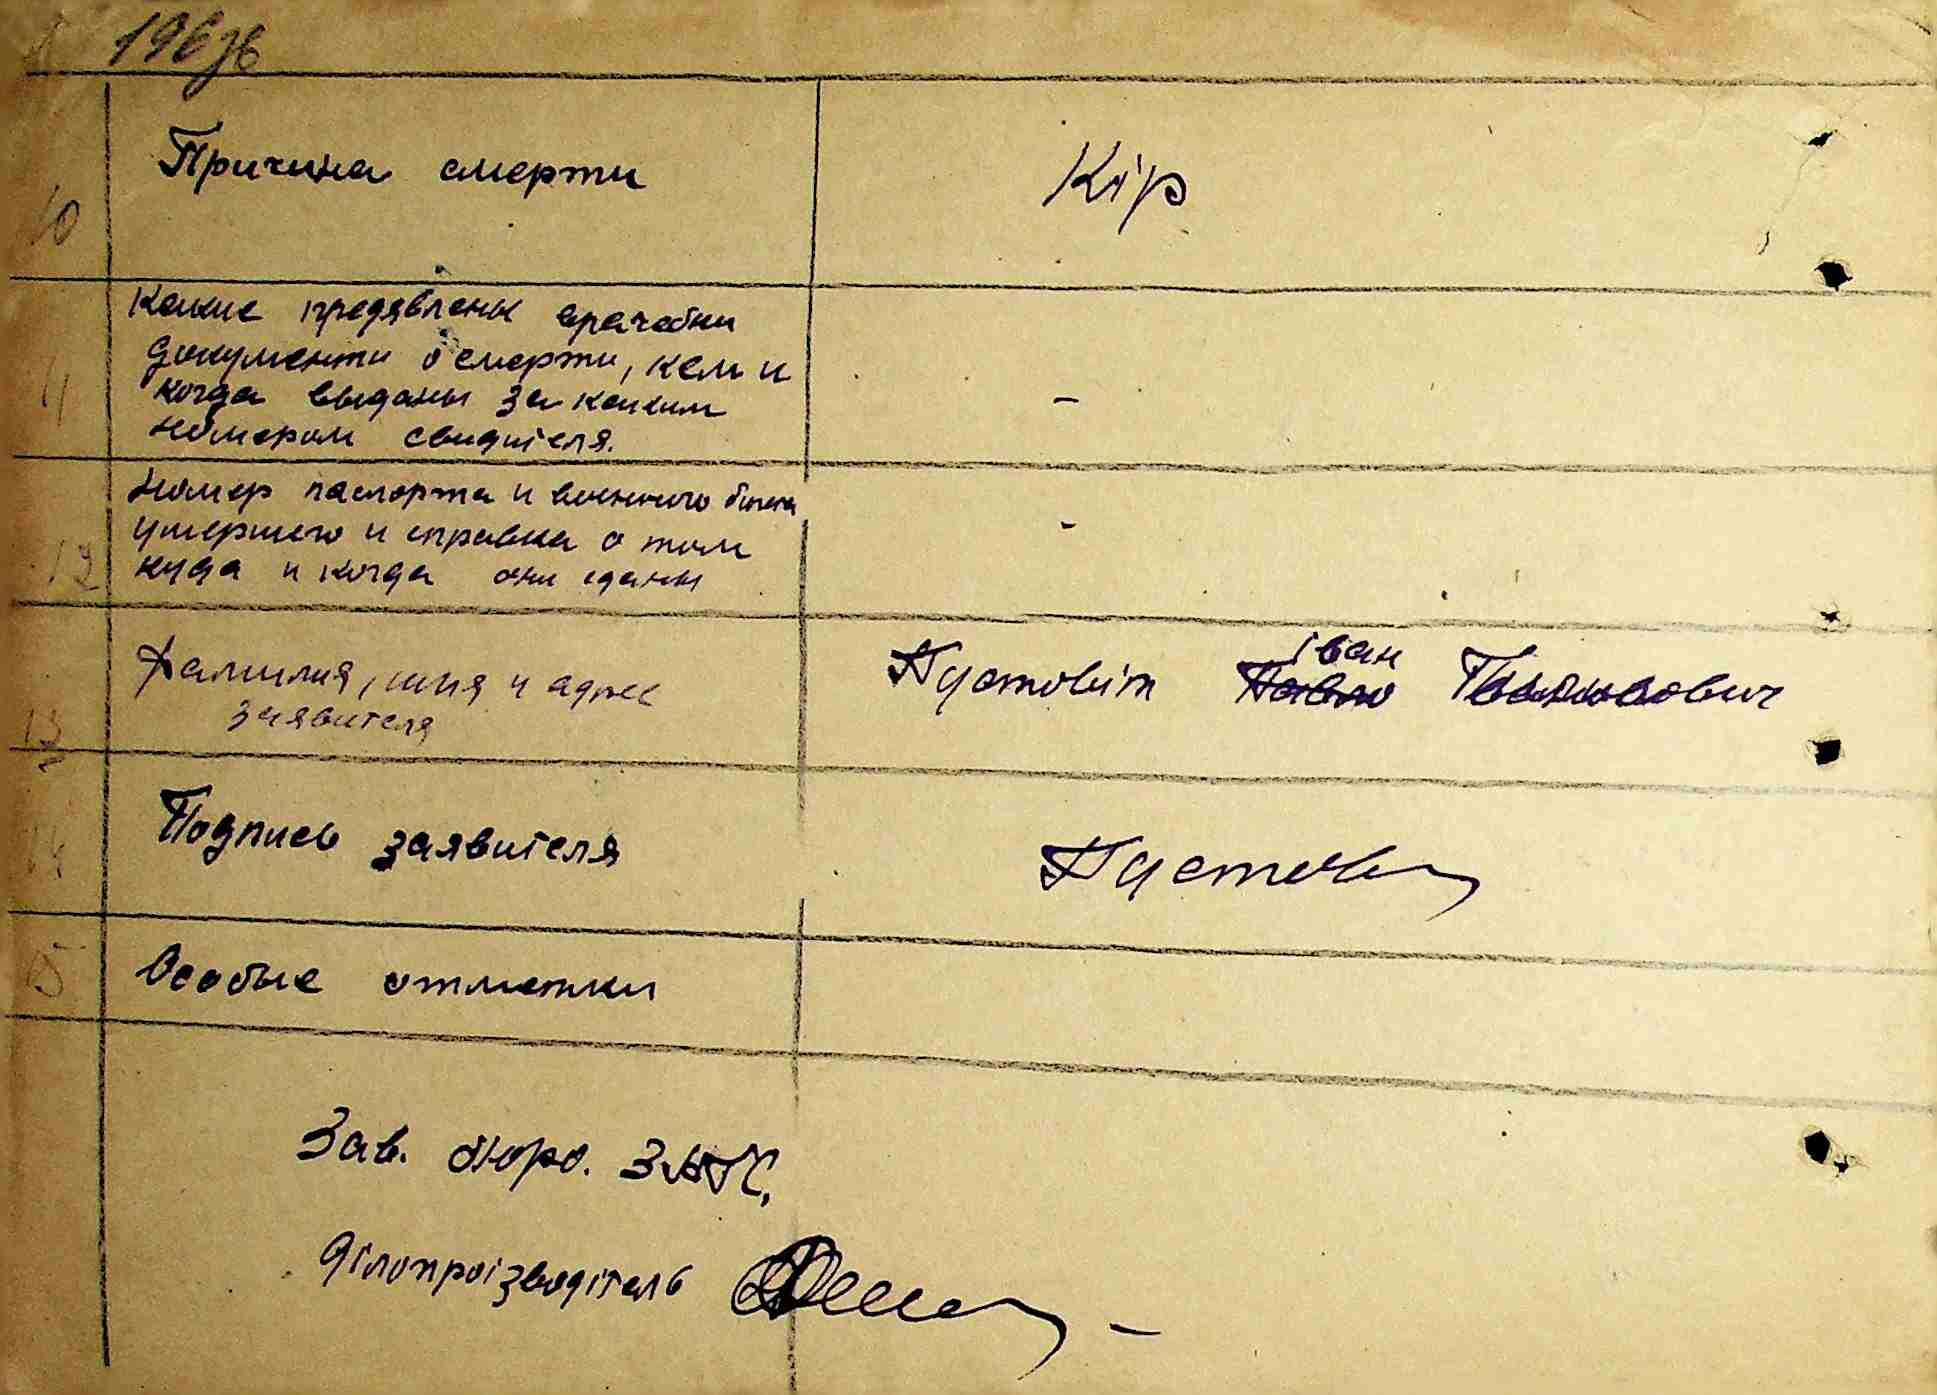 196зв
10
Причина смерти
Кір
11
Какие предявлены врачебни
документи о смерти, кем и
когда выданы за каким
номером свидителя.
-
12
Номер паспорта и военного билета
умершего и справка о том
куда и когда они сданы
-
13
Фамилия, имя и адрес
заявителя
іван
Пустовіт Павло
14
Подпись заявителя
Пустов
15
Особые отметки
Зав. бюро. ЗАГС,
Ділопроізводітель